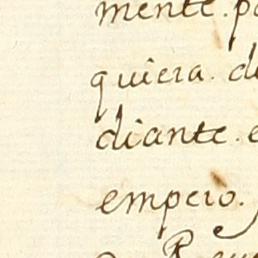 mente. p
quiera. d
diante. e
empero.